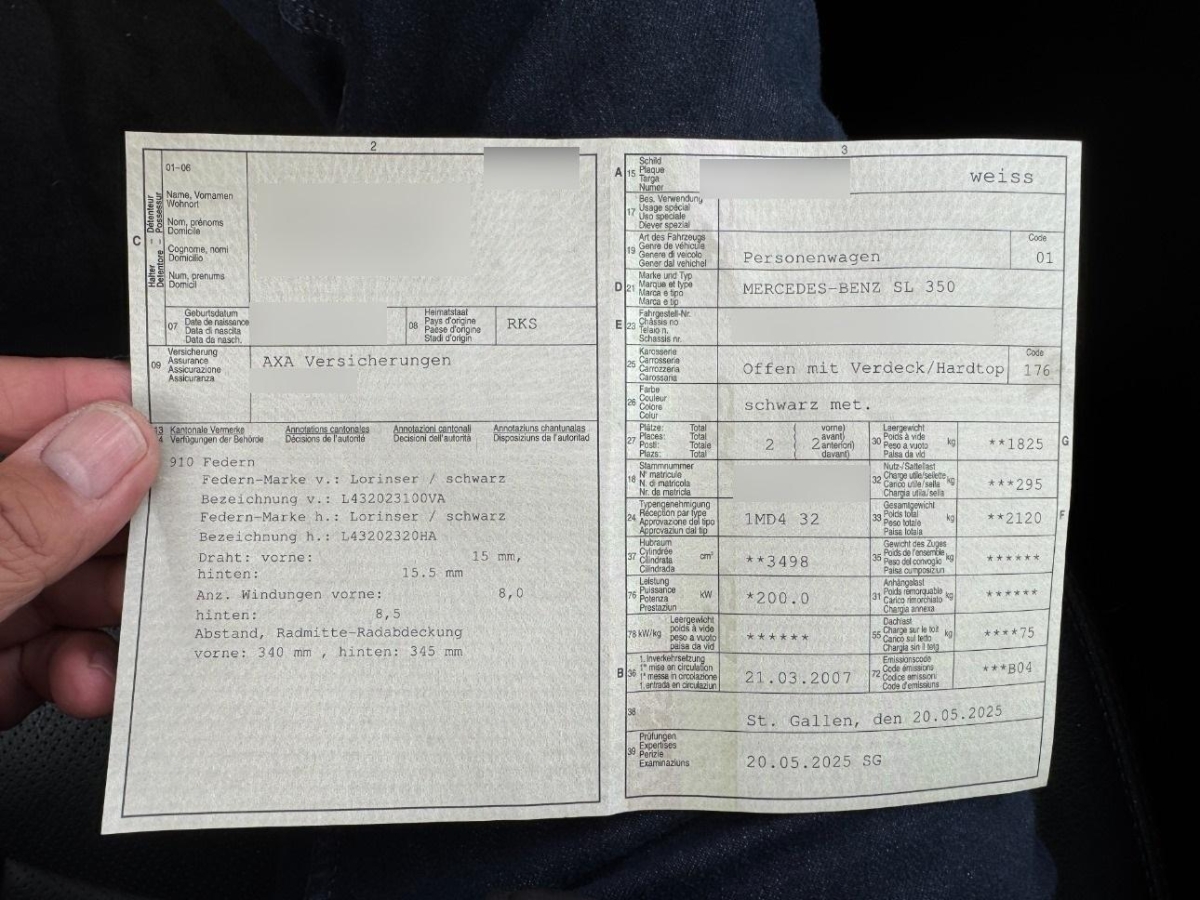 2
01-06
Name, Vornamen
Wohnort
Nom, prénoms
Domicile
Cognome, nomi
Domicilio
Num, prenums
Domicil
C
Halter – Détenteur
Detentore – Possessur
07
Geburtsdatum
Date de naissance
Data di nascita
Data da nasch.
08
Heimatstaat
Pays d'origine
Paese d'origine
Stadi d'origin
RKS
09
Versicherung
Assurance
Assicurazione
Assicuranza
AXA Versicherungen
13
14
Kantonale Vermerke
Verfügungen der Behörde
Annotations cantonales
Décisions de l'autorité
Annotazioni cantonali
Decisioni dell'autorità
Annotaziuns chantunales
Disposiziuns de l'autoritad
910 Federn
Federn-Marke v.: Lorinser / schwarz
Bezeichnung v.: L432023100VA
Federn-Marke h.: Lorinser / schwarz
Bezeichnung h.: L43202320HA
Draht: vorne: 15 mm,
hinten: 15.5 mm
Anz. Windungen vorne: 8,0
hinten: 8,5
Abstand, Radmitte-Radabdeckung
vorne: 340 mm , hinten: 345 mm
3
A
15
Schild
Plaque
Targa
Numer
weiss
17
Bes. Verwendung
Usage spécial
Uso speciale
Diever spezial
19
Art des Fahrzeugs
Genre de véhicule
Genere di veicolo
Gener dal vehichel
Personenwagen
Code
01
D
21
Marke und Typ
Marque et type
Marca e tipo
Marca e tip
MERCEDES-BENZ SL 350
E
23
Fahrgestell-Nr.
Châssis no
Telaio n.
Schassis nr.
25
Karosserie
Carrosserie
Carrozzeria
Carossaria
Offen mit Verdeck/Hardtop
Code
176
26
Farbe
Couleur
Colore
Colur
schwarz met.
27
Plätze: Total
Places: Total
Posti: Totale
Plazs: Total
2
( vorne)
avant)
2 anteriori)
( davant)
30
Leergewicht
Poids à vide
Peso a vuoto
Paisa da vid
kg
**1825
G
18
Stammnummer
N° matricule
N. di matricola
Nr. da matricla
32
Nutz-/Sattellast
Charge utile/sellette
Carico utile/sella
Chargia utila/sella
kg
***295
24
Typengenehmigung
Réception par type
Approvazione del tipo
Approvaziun dal tip
1MD4 32
33
Gesamtgewicht
Poids total
Peso totale
Paisa totala
kg
**2120
F
37
Hubraum
Cylindrée
Cilindrata
Cilindrada
cm³
**3498
35
Gewicht des Zuges
Poids de l'ensemble
Peso del convoglio
Paisa cumposiziun
kg
******
76
Leistung
Puissance
Potenza
Prestaziun
kW
*200.0
31
Anhängelast
Poids remorquable
Carico rimorchiato
Chargia annexa
kg
******
78
kW/kg
Leergewicht
poids à vide
peso a vuoto
paisa da vid
******
55
Dachlast
Charge sur le toit
Carico sul tetto
Chargia sin il tetg
kg
****75
B
36
1. Inverkehrsetzung
1re mise en circulation
1a messa in circolazione
1. entrada en circulaziun
21.03.2007
72
Emissionscode
Code émissions
Codice emissioni
Code d'emissiuns
***B04
38
St. Gallen, den 20.05.2025
39
Prüfungen
Expertises
Perizie
Examinaziuns
20.05.2025 SG